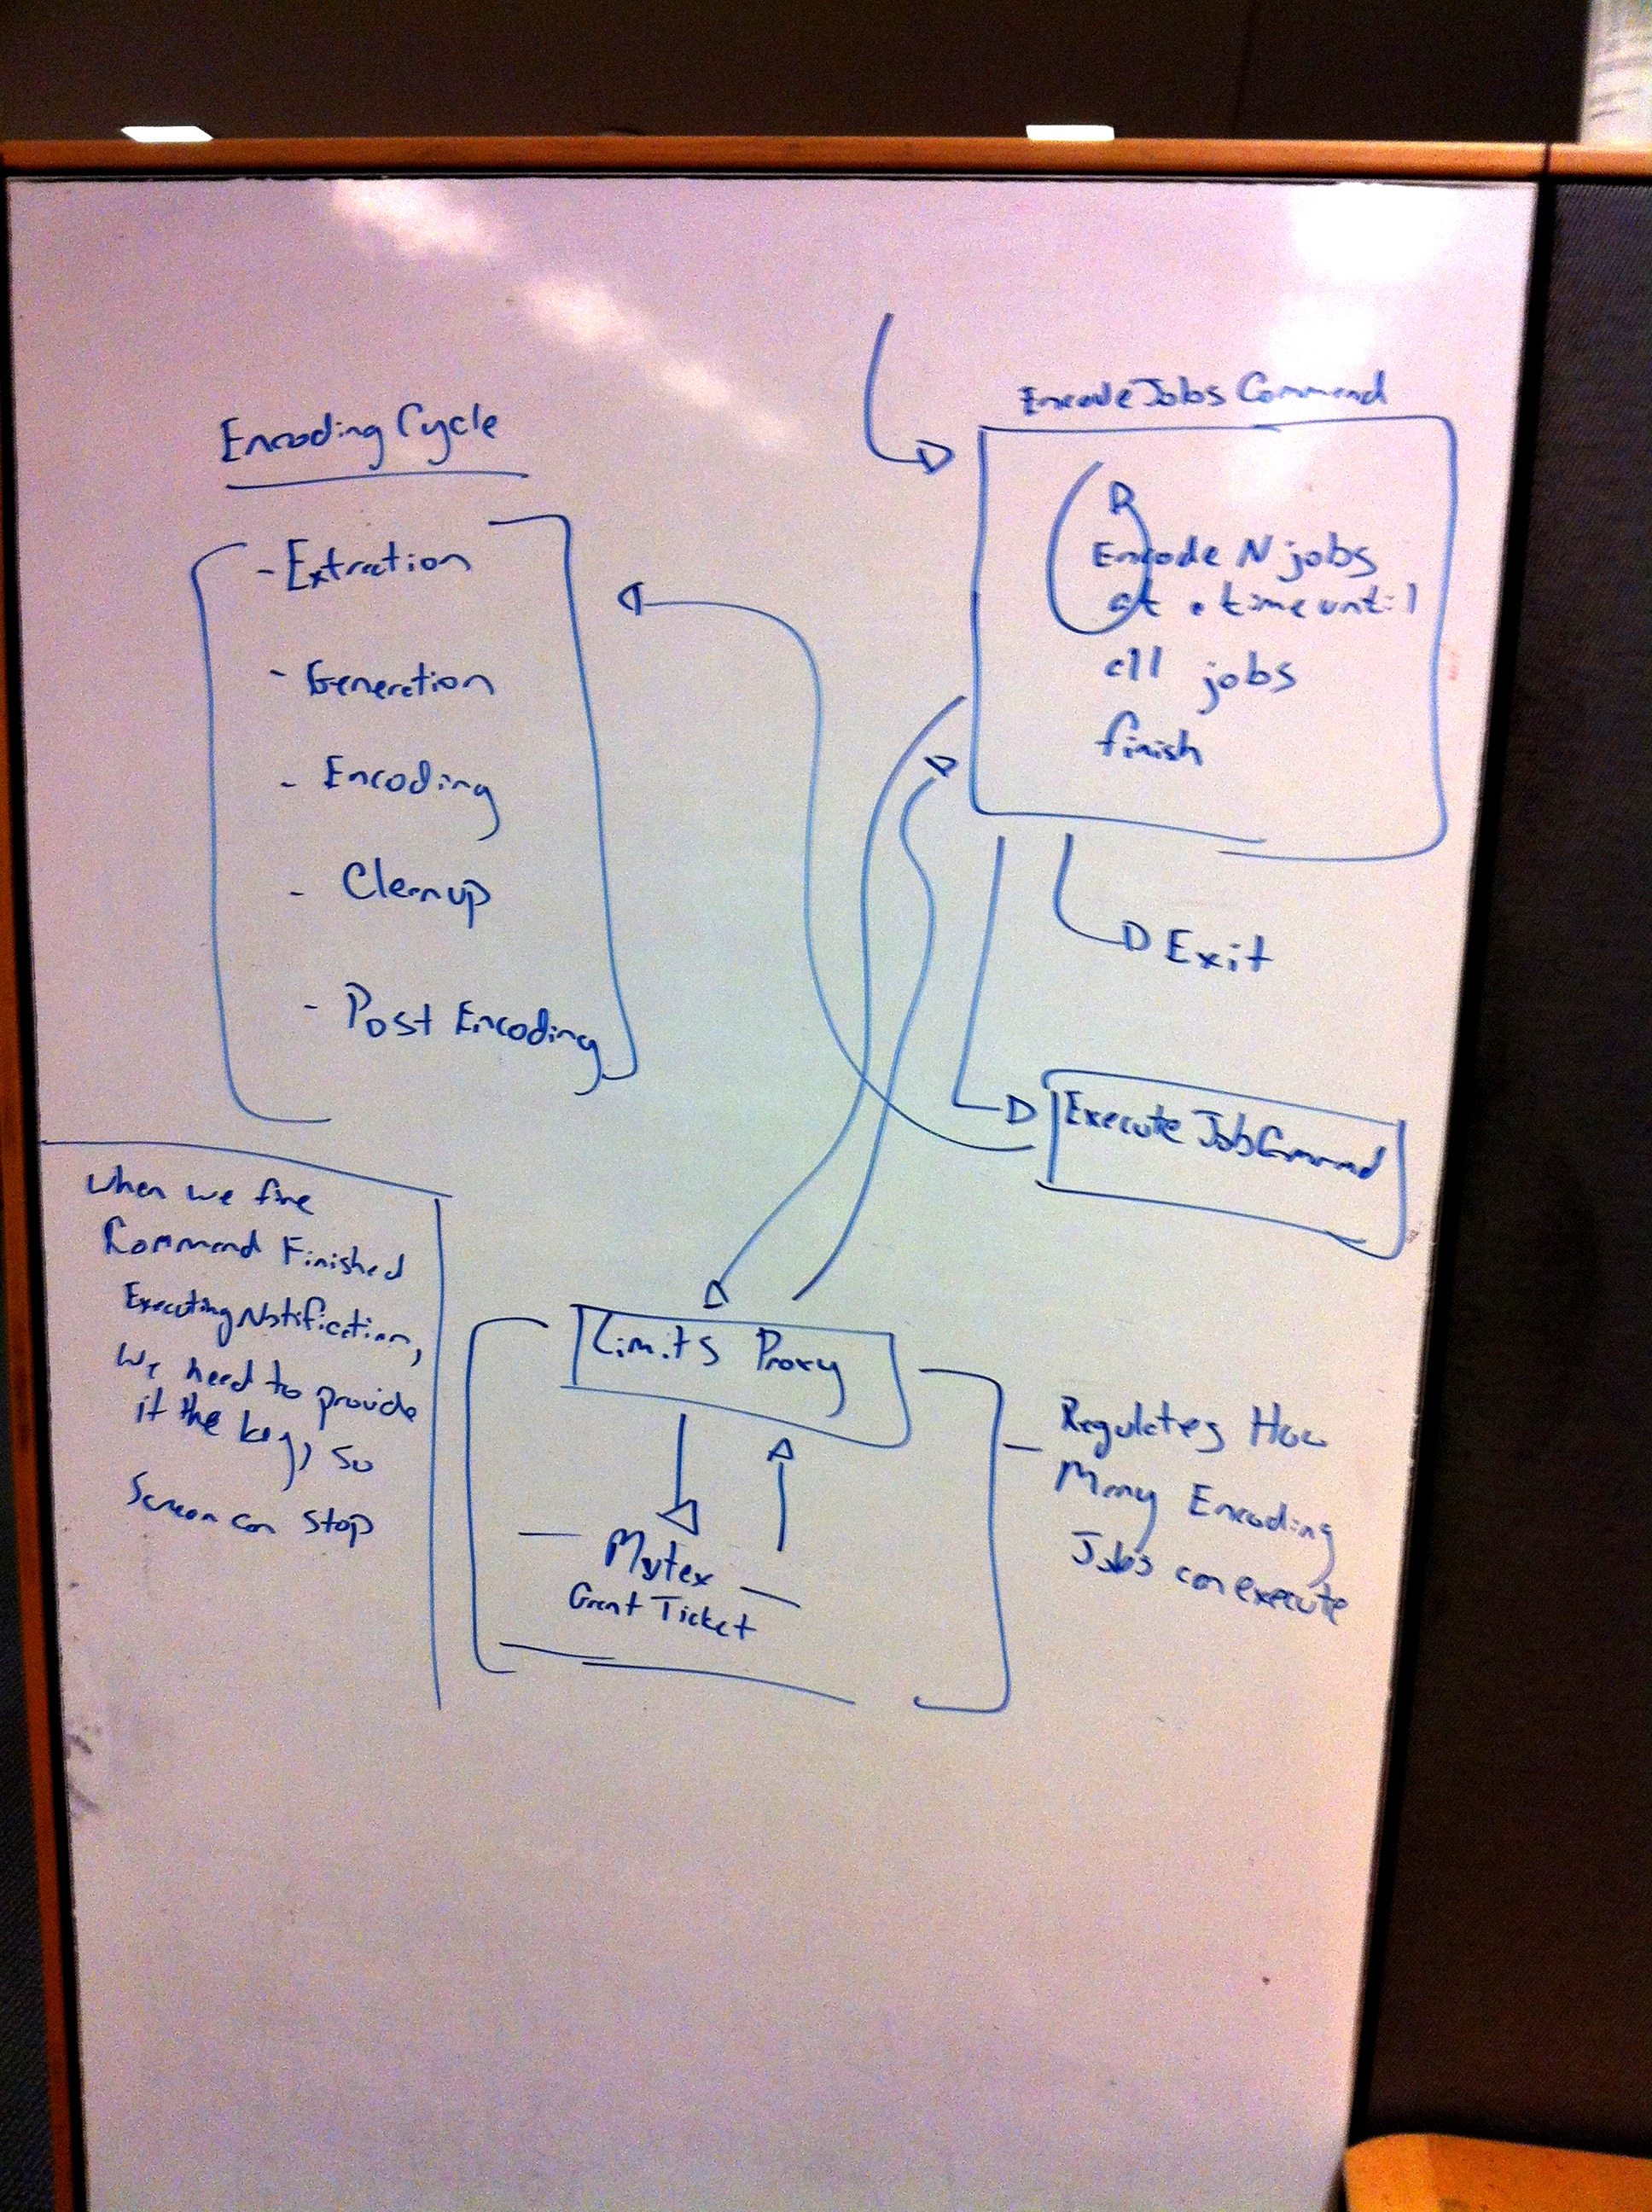 Encoding Cycle
- Extraction
- Generation
- Encoding
- Cleanup
- Post Encoding
EncodeJobsCommand
Encode N jobs
at a time until
all jobs
finish
Exit
ExecuteJobCommand
When we fire
Command Finished
ExecutingNotification,
We need to provide
it the key, so
Screen can stop
Limits Proxy
Mutex
Grant Ticket
Regulates How
Many Encoding
Jobs can execute